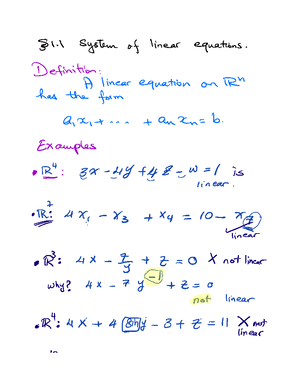 §1.1 System of linear equations.
Definition:
A linear equation on ℝⁿ
has the form
a₁x₁ + ⋯ + aₙxₙ = b.
Examples
• ℝ⁴: 3x - 4y + 4z - w = 1 is
linear.
• ℝ⁷: 4x₁ - x₃ + x₄ = 10 - x₇
linear
• ℝ³: 4x - 7/y + z = 0 X not linear
why? 4x - 7y⁻¹ + z = 0
not linear
• ℝ⁴: 4x + 4 sin y - 3 + z = 11 X not
linear